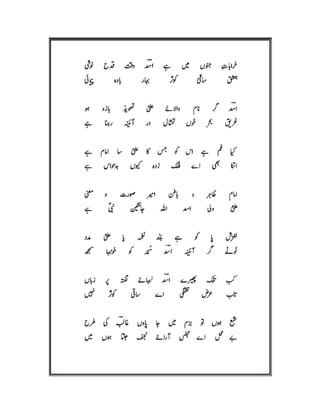 خرابات جنوں میں ہے اسدؔ وقت قدح نوشی
بعشقِ ساقیٔ کوثر بہار بادہ پیمائی
اسدؔ گر نام والائے علیؑ تعویذ بازو ہو
غریق بحر خوں تمثال در آئینہ رہتا ہے
کیا غم ہے اس کو جس کا علیؑ سا امام ہے
اتنا بھی اے فلک زدہ کیوں بدحواس ہے
امام ظاہر و باطن امیر صورت و معنی
علیؑ ولی اسد اللہ جانشین نبیؐ ہے
لغزش پا کو ہے بلد نغمہ یا علیؑ مدد
ٹوٹے گر آئینہ اسدؔ سبحہ کو خونبہا سمجھ
کب تلک پھیرے اسدؔ لبہائے تفتہ پر زباں
تاب عرض تشنگی اے ساقی کوثر نہیں
شمع ہوں تو بزم میں جا پاؤں غالبؔ کی طرح
بے محل اے مجلس آرائے نجف جلتا ہوں میں